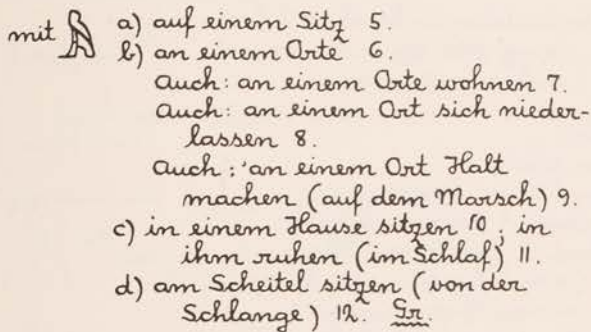 mit 𓅓 a) auf einem Sitz 5.
b) an einem Orte 6.
Auch: an einem Orte wohnen 7.
Auch: an einem Ort sich nieder-
lassen 8.
Auch: an einem Ort Halt
machen (auf dem Marsch) 9.
c) in einem Hause sitzen 10; in
ihm ruhen (im Schlaf) 11.
d) am Scheitel sitzen (von der
Schlange) 12. Gr.